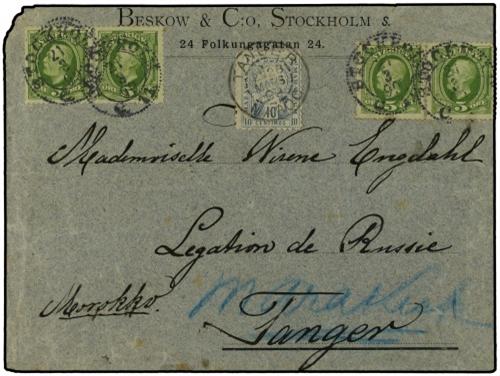 BESKOW & C:O, STOCKHOLM S.
24 Folkungagatan 24.
10
10 CENTIMES 10
5 5
Mademoiselle Wirene Engdahl
Legation de Russie
Morokko.
Tanger